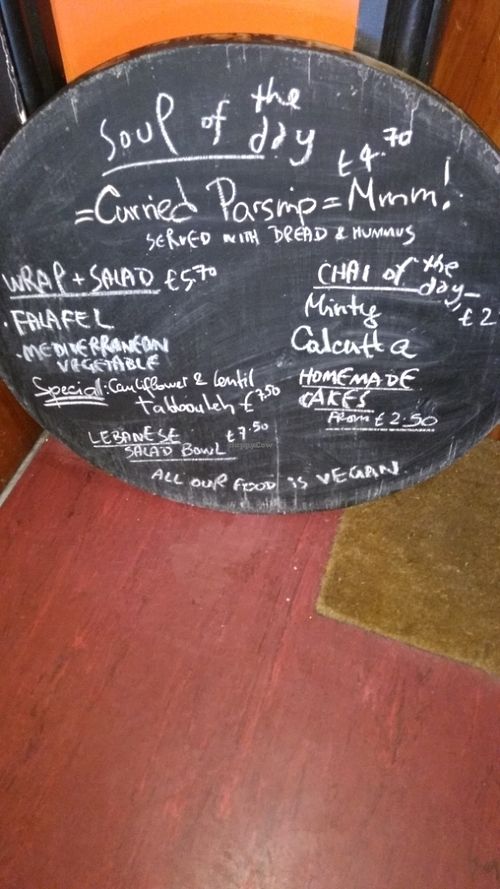 Soup of the day £4.70
=Curried Parsnip= Mmm!
SERVED WITH BREAD & HUMMUS
WRAP + SALAD £5.70
. FALAFEL
. MEDITERRANEAN VEGETABLE
Special: Cauliflower & lentil
tabbouleh £7.50
LEBANESE £7.50
SALAD BOWL
CHAI of the day - £2
Minty
Calcutta
HOMEMADE
CAKES
FROM £2.50
ALL OUR FOOD is VEGAN
HappyCow